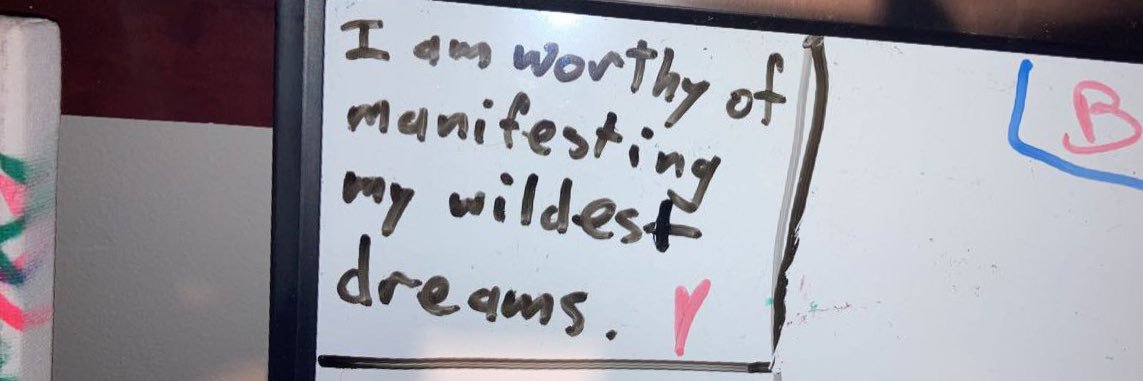 I am worthy of
manifesting
my wildest
dreams.
B